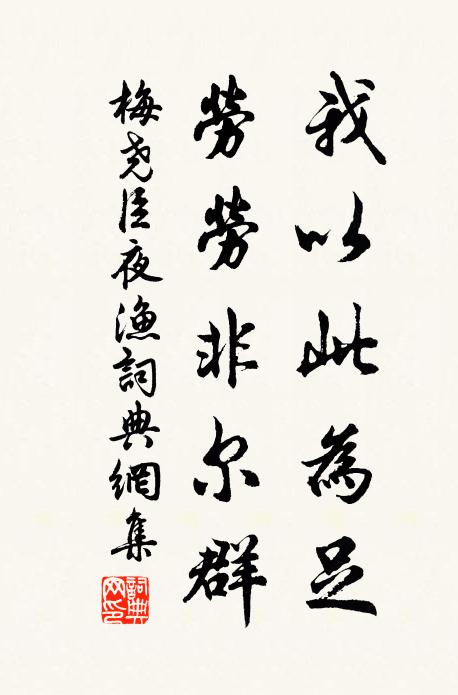 我以此為足
勞勞非尔群
梅尧臣夜漁詞典網集
詞典网印